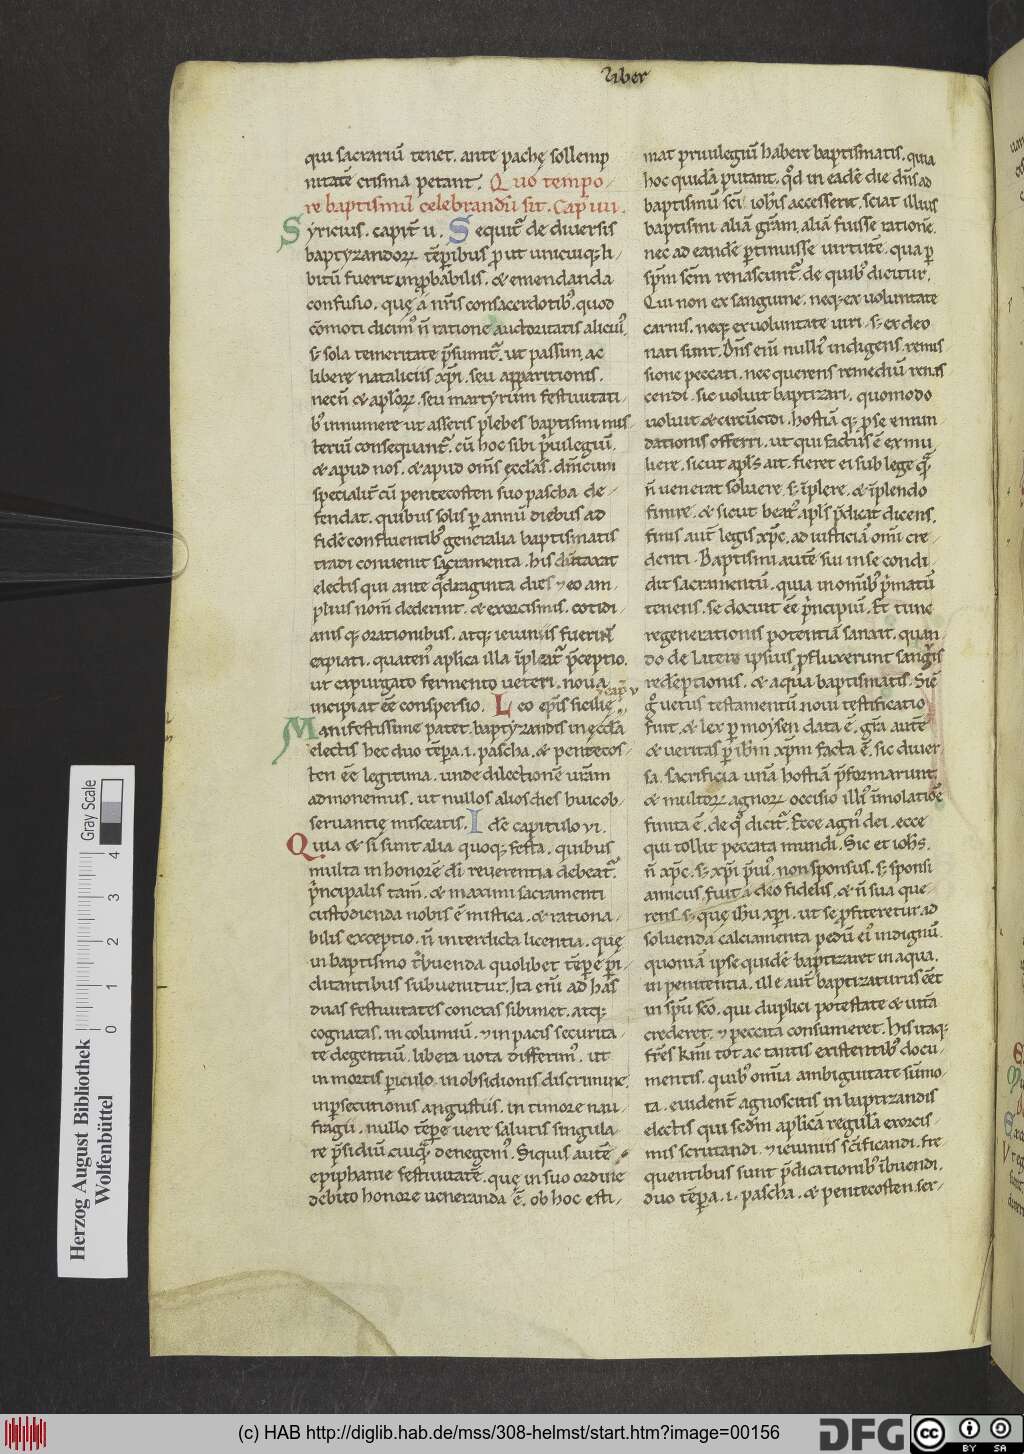 Liber
qui sacrariū tenet. ante pachę sollemp
nitatē crisma petant. Quo tempo
re baptismū celebrandū sit. Cap. iiii.
Syricius. capit̄ ii. Sequit̄ de diuersis
baptyzandoꝝ tēꝑibus ꝓut unicuiqꝫ li
bitū fuerit inꝓbabilis. & emendanda
confusio. quę a nr̄is consacerdotibꝰ. quod
cōmoti dicimꝰ. n̄ ratione auctoritatis alicuiꝰ.
sꝫ sola temeritate p̄sumit̄. ut passim ac
libere nataliciis xp̄i. seu apparitionis.
necn̄ & ap̄loꝝ. seu martyrum festiuitati
bꝰ innumere ut asseris plebes baptismi mis
teriū consequant̄. cū hoc sibi p̄uilegiū.
& apud nos. & apud om̄s ęccl̄as. dn̄icum
specialit̄ cū pentecosten suo pascha de
fendat. quibus solis ꝑ annū diebus ad
fidē confluentibꝰ generalia baptismatis
tradi conuenit sacramenta. his dūtaxat
electis qui ante q̄draginta dies ⁊ eo am
plius nom̄ dederint. & exorcismis. cotidi
anis qꝫ orationibus. atqꝫ ieiuniis fuerint
expiati. quatenꝰ aplica illa īpleat̄ p̄ceptio.
ut expurgato fermento ueteri. noua
incipiat ēe conspersio. Leo ep̄s sicilię. cap̄ v
Manifestissime patet. baptyzandis in ęccl̄a
electis hec duo tēꝑa. i. pascha. & pentecos
ten ēe legitima. unde dilectionē urām
admonemus. ut nullos alios dies huic ob
seruantię misceatis. Idē capitulo vi.
Quia & si sunt alia quoqꝫ festa. quibus
multa in honorē dī reuerentia debeat̄.
p̄ncipalis tam̄. & maximi sacramenti
custodienda nobis ē mistica. & rationa
bilis exceptio. n̄ interdicta licentia. quę
in baptismo t̄buenda quolibet tēꝑe ꝑi
clitantibus subuenitur. Ita eni ad has
duas festiuitates conexas sibimet. atqꝫ
cognatas. in columiū. ⁊ in pacis securita
te degentiū. libera uota differimꝰ. ut
in mortis ꝑiculo. in obsidionis discrimine.
in ꝑsecutionis angustiis. in timore nau
fragii. nullo tēꝑe uere salutis singula
re p̄sidiū cuiquā denegemꝰ. Siquis autē
epiphanie festiuitatē. quę in suo ordine
debito honore ueneranda ē. ob hoc esti
mat priuilegiū habere baptismatis. quia
hoc quidā putant. qd̄ in eadē die dn̄s ad
baptismū sc̄i ioh̄is accesserit. sciat illius
baptismi aliā gr̄am. aliā fuisse rationē.
nec ad eandē ꝑtinuisse uirtutē. qua ꝑ
sp̄m sc̄m renascunt̄. de quibꝰ dicitur.
Qui non ex sanguine. neqꝫ ex uoluntate
carnis. neqꝫ ex uoluntate uiri. sꝫ ex deo
nati sunt. Dn̄s eni nulliꝰ indigens remis
sione peccati. nec querens remediū renas
cendi. sic uoluit baptizari. quomodo
uoluit & circūcidi. hostiā qꝫ ꝓ se emun
dationis offerri. ut qui factus ē ex mu
liere. sicut apl̄s ait. fieret et sub lege quā
n̄ uenerat soluere. sꝫ īplere. & īplendo
finire. & sicut beatꝰ apl̄s p̄dicat dicens.
finis aut̄ legis xp̄c. ad iusticiā omī cre
denti. Baptismi autē sui in se condi
dit sacramentū. quia in omībꝰ p̄matū
tenens. se docuit ēe p̄ncipiū. Et tunc
regenerationis potentiā sanxit. quan
do de latere ipsius ꝓfluxerunt sanguis
redeptionis. & aqua baptismatis. Sic
g̊ uetus testamentū noui testificatio
fuit. & lex ꝑ moysen data ē. gr̄a autē
& ueritas ꝑ ihm̄ xp̄m facta ē. sic diuer
sa. sacrificia unā hostiā p̄formarunt.
& multoꝝ agnoꝝ occisio illiꝰ īmolatiōe
finita ē. de q̊ dicit̄. Ecce agnꝰ dei. ecce
qui tollit peccata mundi. Sic et ioh̄s.
n̄ xp̄c. sꝫ xp̄i p̄uiꝰ. non sponsus. sꝫ sponsi
amicus fuit a deo fidelis. & n̄ sua que
rens. sꝫ quę ihū xp̄i. ut se ꝓfiteretur ad
soluenda calciamenta pedū eiꝰ indignū.
quoniā ipse quidē baptizaret in aqua.
in penitentia. ille aut̄ baptizaturus eēt
in sp̄u sc̄o. qui duplici potestate & uitā
crederet. ⁊ peccata consumeret. His itaqꝫ
fr̄es km̄i tot ac tantis existentibꝰ docu
mentis. quibꝰ om̄ia ambiguitate sūmo
ta. euident̄ agnoscitis in baptizandis
electis qui sedm̄ aplicā regulā exorcis
mis scrutandi. ⁊ ieiuniis sc̄ificandi. fre
quentibus sunt p̄dicationibꝰ ībuendi.
duo tēꝑa. i. pascha. & pentecosten ser
Herzog August Bibliothek
Wolfenbüttel
0 1 2 3 4
Gray Scale
(c) HAB http://diglib.hab.de/mss/308-helmst/start.htm?image=00156
DFG
cc
BY SA